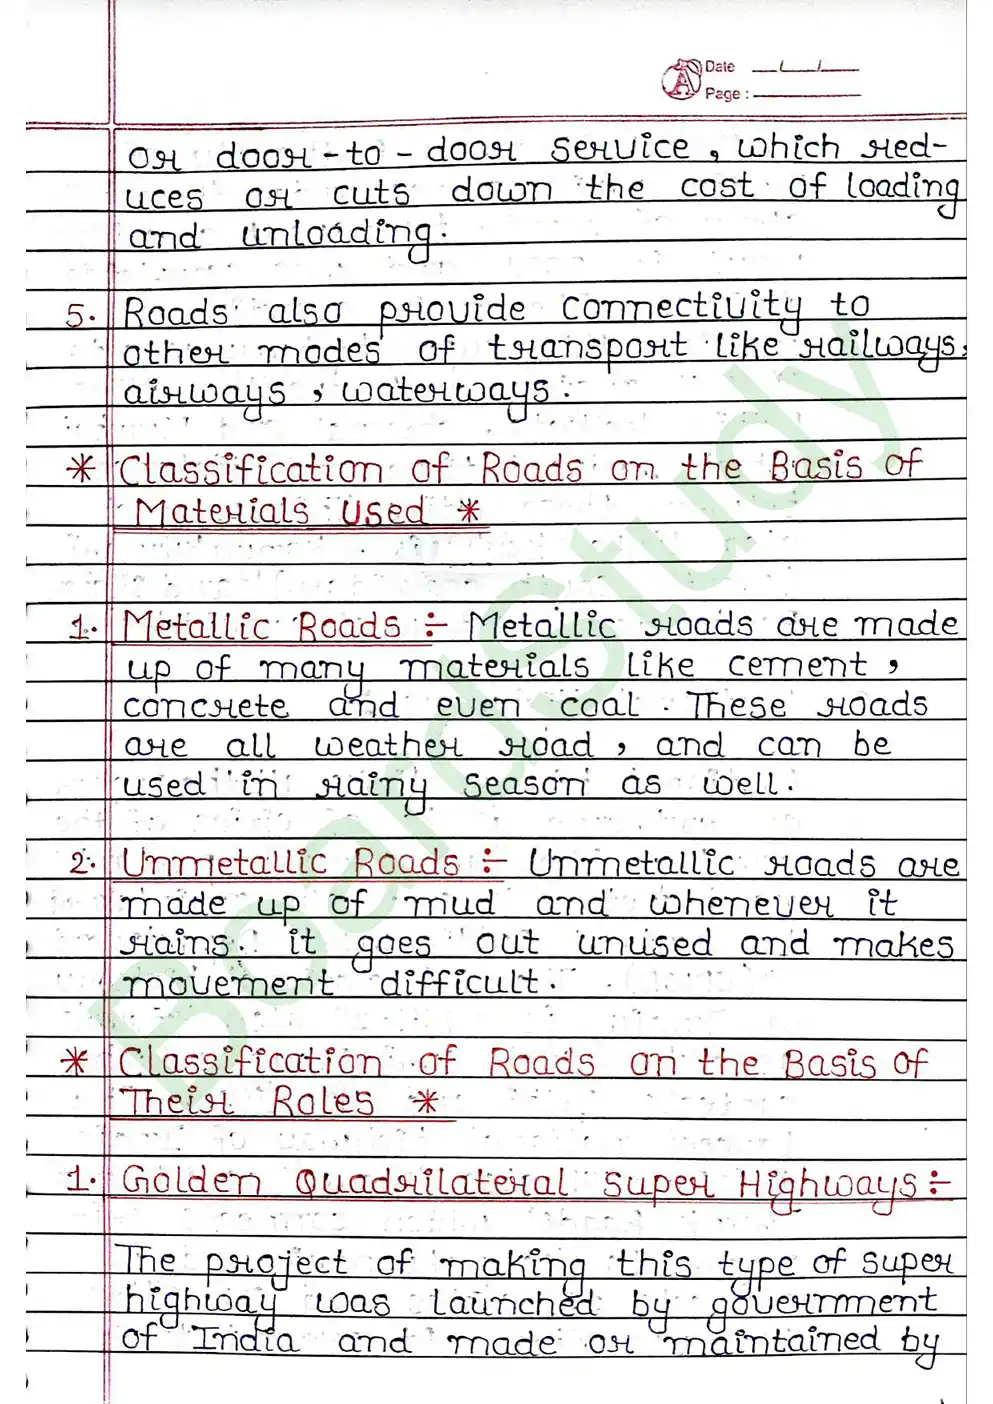 Date __/__/__
Page : ______
or door-to-door service, which red-
uces or cuts down the cost of loading
and unloading.
5. Roads also provide connectivity to
other modes of transport like railways,
airways, waterways.
* Classification of Roads on the Basis of
Materials Used *
1. Metallic Roads ÷ Metallic roads are made
up of many materials like cement,
concrete and even coal. These roads
are all weather road, and can be
used in rainy season as well.
2. Unmetallic Roads ÷ Unmetallic roads are
made up of mud and whenever it
rains. it goes out unused and makes
movement difficult.
* Classification of Roads on the Basis of
Their Roles *
1. Golden Quadrilateral Super Highways ÷
The project of making this type of super
highway was launched by government
of India and made or maintained by
BoardStudy